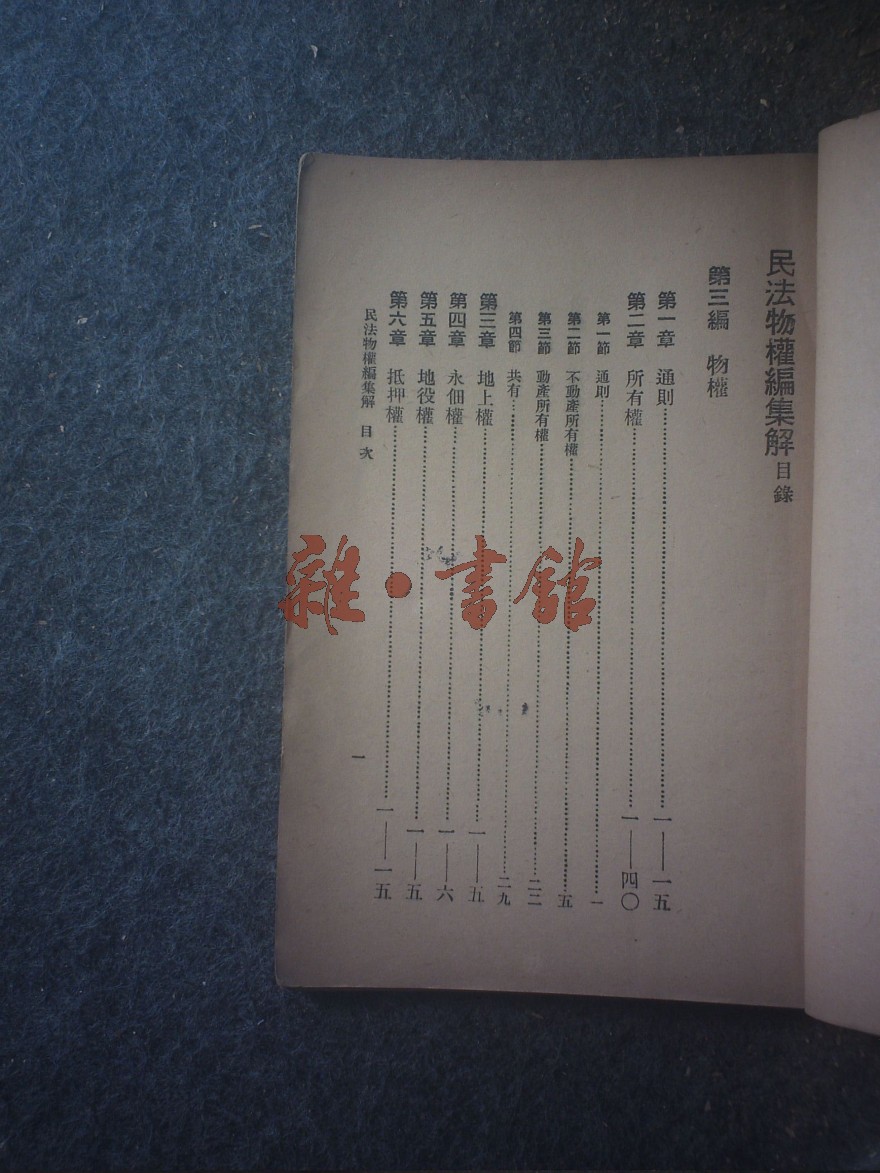 民法物權編集解目錄
第三編 物權
第一章 通則……一——一五
第二章 所有權……一——四〇
第一節 通則……一
第二節 不動產所有權……五
第三節 動產所有權……二二
第四節 共有……二九
第三章 地上權……一——五
第四章 永佃權……一——六
第五章 地役權……一——五
第六章 抵押權……一——一五
民法物權編集解 目次
一
雜·書館